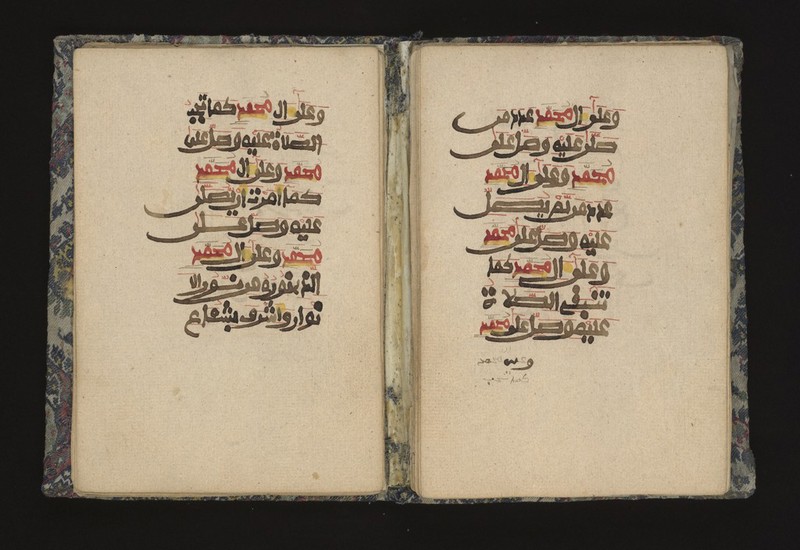 وعلى ال محمد عدد من
صلى عليه وصل على
محمد وعلى ال محمد
عدد من لم يصل
عليه وصل على محمد
وعلى ال محمد كما
تنبغي الصلاة
عليه وصل على محمد
وعلى ال محمد كما تجب
الصلاة عليه وصل على
محمد وعلى ال محمد
كما امرت ان يصلى
عليه وصل على
محمد وعلى ال محمد
الذي نوره من نور الا
نوار واشرق بشعاع